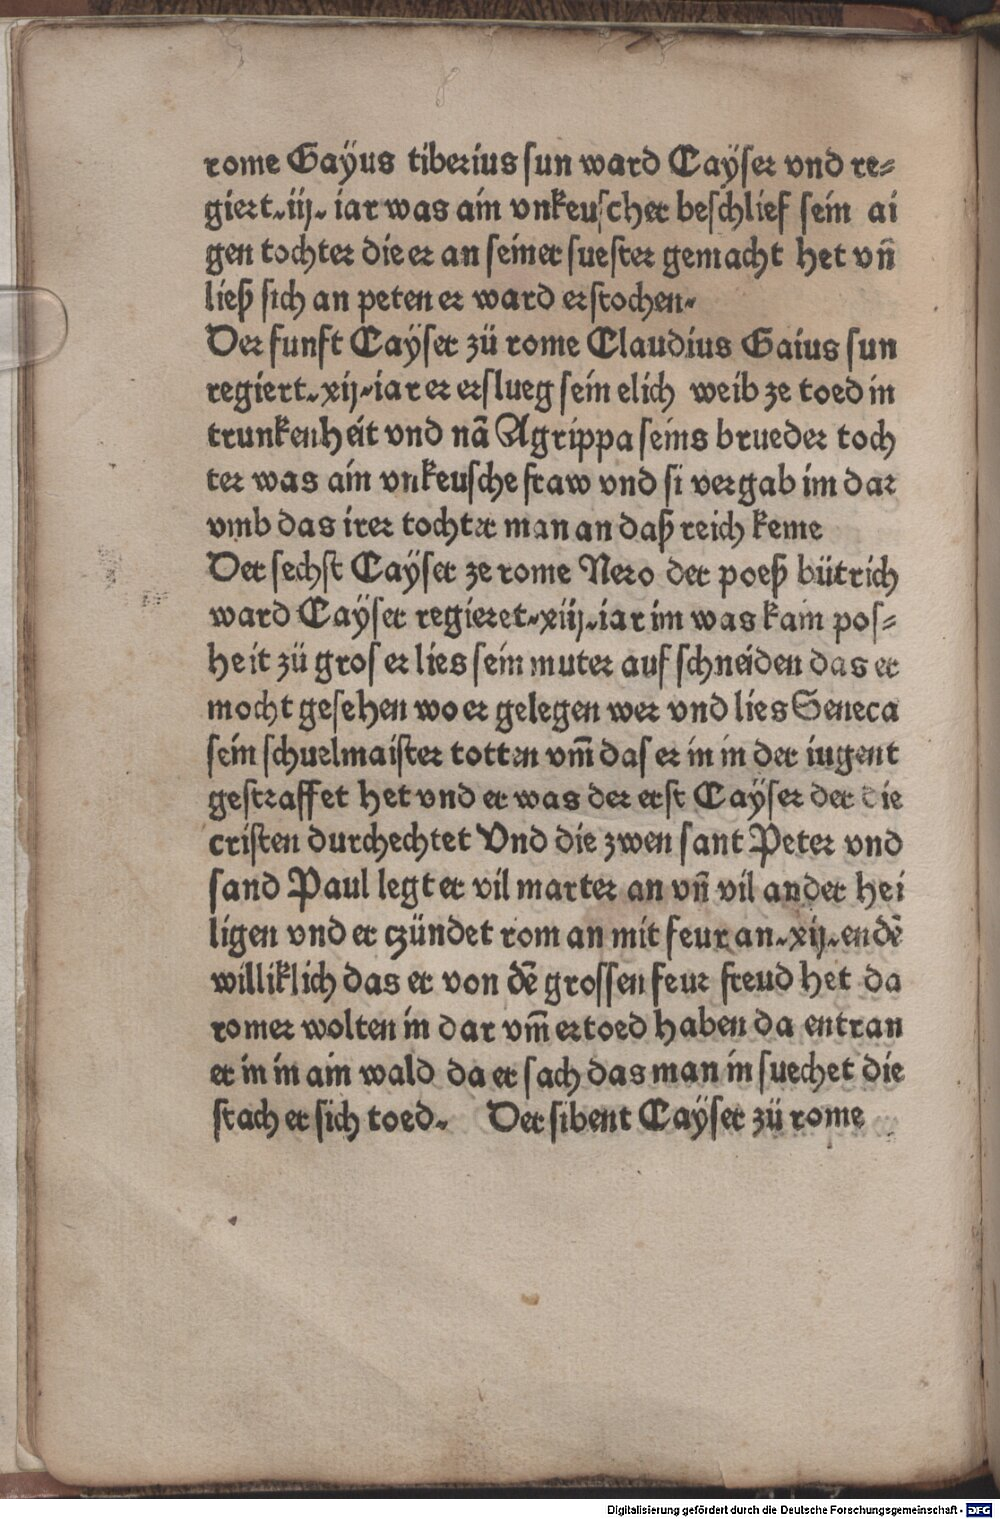 rome Gaÿus tiberius sun ward Caÿser vnd re⸗
giert.iij. iar was ain vnkeuscher beschlief sein ai
gen tochter die er an seiner suester gemacht het vn̄
ließ sich an peten er ward erstochen.
Der funft Caÿser zü rome Claudius Gaius sun
regiert.xij.iar er erslueg sein elich weib ze toed in
trunkenheit vnd nā Agrippa seins brueder toch
ter was ain vnkeusche fraw vnd si vergab im dar
vmb das irer tochter man an daß reich keme
Der sechst Caÿser ze rome Nero der poeß bütrich
ward Caÿser regieret.xiij.iar im was kain pos⸗
heit zü gros er lies sein muter auf schneiden das er
mocht gesehen wo er gelegen wer vnd lies Seneca
sein schuelmaister totten vm̄ das er in in der iugent
gestraffet het vnd er was der erst Caÿser der die
cristen durchechtet Vnd die zwen sant Peter vnd
sand Paul legt er vil marter an vn̄ vil ander hei
ligen vnd er czündet rom an mit feur an.xij.endē
williklich das er von dē grossen feur freud het da
romer wolten in dar vm̄ ertoed haben da entran
er in in ain wald da er sach das man in suechet die
stach er sich toed. Der sibent Caÿser zü rome
Digitalisierung gefördert durch die Deutsche Forschungsgemeinschaft - DFG